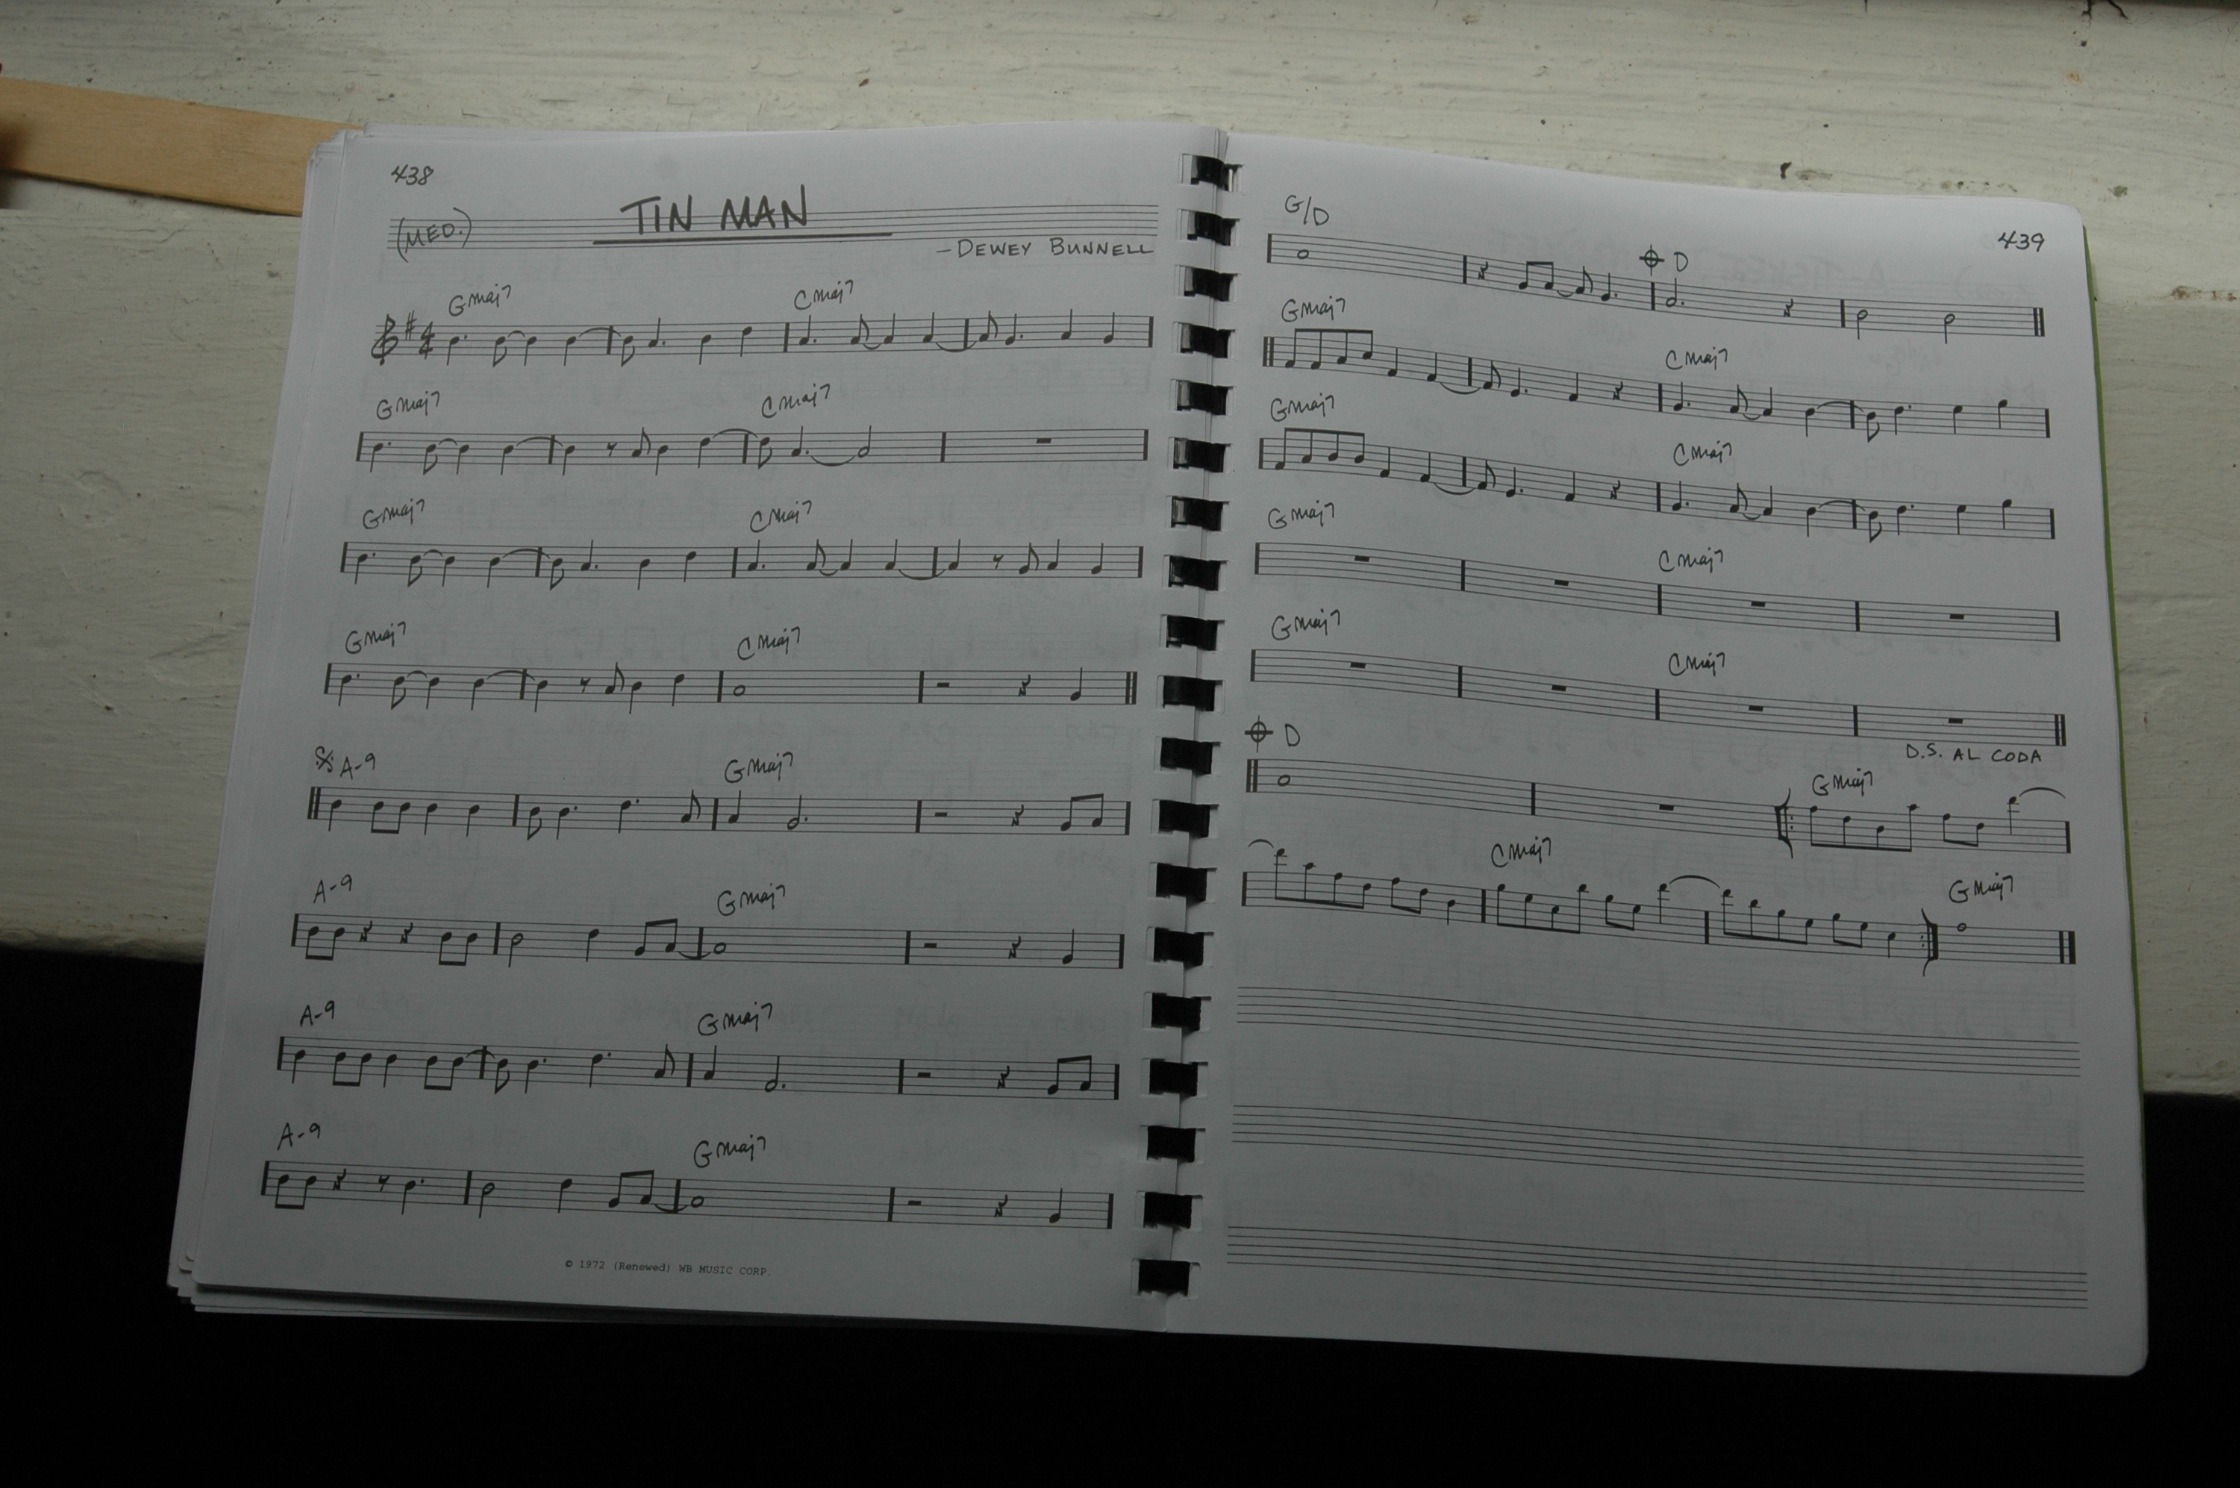 438
TIN MAN
(MED.)
- DEWEY BUNNELL
Gmaj7 Cmaj7
Gmaj7 Cmaj7
Gmaj7 Cmaj7
Gmaj7 Cmaj7
A-9 Gmaj7
A-9 Gmaj7
A-9 Gmaj7
A-9 Gmaj7
© 1972 (Renewed) WB MUSIC CORP.
439
G/D D
Gmaj7 Cmaj7
Gmaj7 Cmaj7
Gmaj7 Cmaj7
Gmaj7 Cmaj7
D.S. AL CODA
D Gmaj7
Cmaj7 Gmaj7